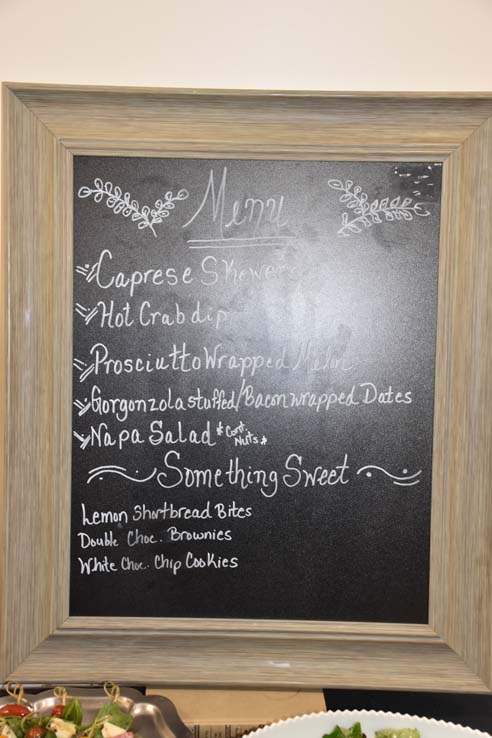 Menu
Caprese Skewers
Hot Crab dip
Prosciutto Wrapped Melon
Gorgonzola stuffed/Bacon wrapped Dates
Napa Salad *Cont. Nuts*
Something Sweet
Lemon Shortbread Bites
Double Choc. Brownies
White Choc. Chip Cookies